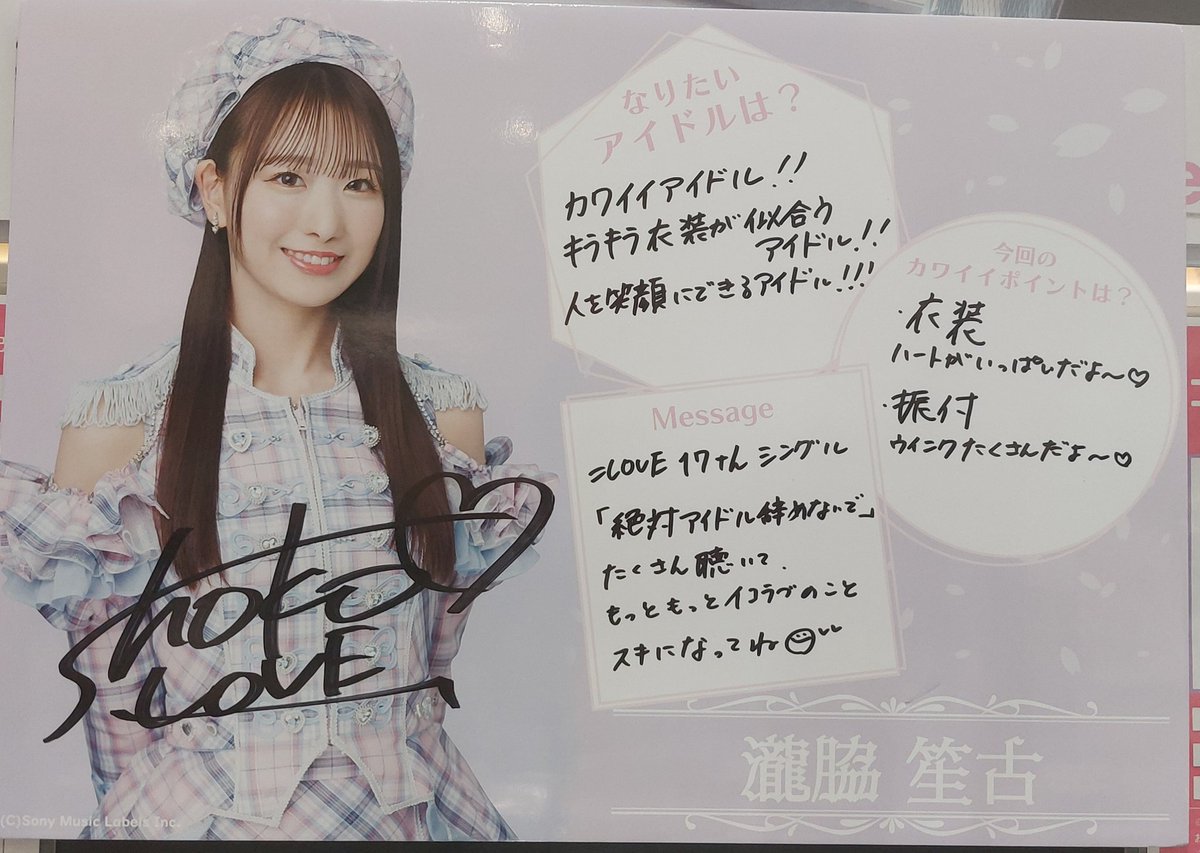 なりたい
アイドルは？
カワイイアイドル!!
キラキラ衣装が似合う
アイドル!!
人を笑顔にできるアイドル!!!
今回の
カワイイポイントは？
・衣装
ハートがいっぱいだよ〜♡
・振付
ウインクたくさんだよ〜♡
Message
=LOVE 17thシングル
「絶対アイドル辞めないで」
たくさん聴いて
もっともっとイコラブのこと
スキになってね
Shoko
=LOVE
瀧脇 笙古
(C)Sony Music Labels Inc.